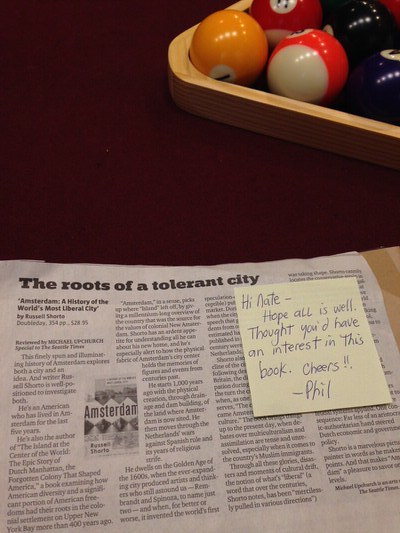 The roots of a tolerant city
'Amsterdam: A History of the
World's Most Liberal City'
by Russell Shorto
Doubleday, 354 pp., $28.95
Reviewed by MICHAEL UPCHURCH
Special to The Seattle Times
This finely spun and illuminat-
ing history of Amsterdam explores
both a city and an
idea. And writer Rus-
sell Shorto is well-po-
sitioned to investigate
both.
He's an American
who has lived in Am-
sterdam for the last
five years.
He's also the author
of "The Island at the
Center of the World:
The Epic Story of
Dutch Manhattan, the
Forgotten Colony That Shaped
America," a book examining how
American diversity and a signifi-
cant portion of American free-
doms had their roots in the colo-
nial settlement on Upper New
York Bay more than 400 years ago.
Amsterdam
Russell
Shorto
"Amsterdam," in a sense, picks
up where "Island" left off, by giv-
ing a millennium-long overview of
the country that was the source for
the values of colonial New Amster-
dam. Shorto has an ardent appe-
tite for understanding all he can
about his new home, and he's
especially alert to how the physical
fabric of Amsterdam's city center
holds the memories of
figures and events from
centuries past.
He starts 1,000 years
ago with the physical
creation, through drain-
age and dam building, of
the land where Amster-
dam is now sited. He
then moves through the
Netherlands' wars
against Spanish rule and
its years of religious
He dwells on the Golden Age of
the 1600s, when the ever-expand-
ing city produced artists and think-
ers who still astound us — Rem-
brandt and Spinoza, to name just
two — and when, for better or
worse, it invented the world's first
culture."
up to the present day, when de-
bates over multiculturalism and
assimilation are tense and unre-
solved, especially when it comes to
the country's Muslim immigrants.
Through all these glories, disas-
ters and moments of cultural drift,
the notion of what's "liberal" (a
word that over the centuries,
Shorto notes, has been "merciless-
ly pulled in various directions")
Dutch economic and
Shorto is a marvelous
Michael Upchurch is an arts
The Seattle Times.
Hi Nate -
Hope all is well.
Thought you'd have
an interest in this
book. Cheers!!
-Phil